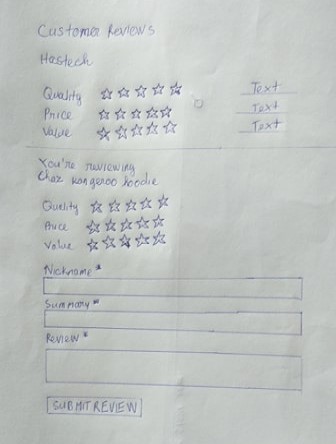 Customer Reviews
Hastech
Quality ☆☆☆☆☆ Text
Price ☆☆☆☆☆ Text
Value ☆☆☆☆☆ Text
You're reviewing
Chaz Kangeroo hoodie
Quality ☆☆☆☆☆
Price ☆☆☆☆☆
Value ☆☆☆☆☆
Nickname*
Summary*
Review*
SUBMIT REVIEW